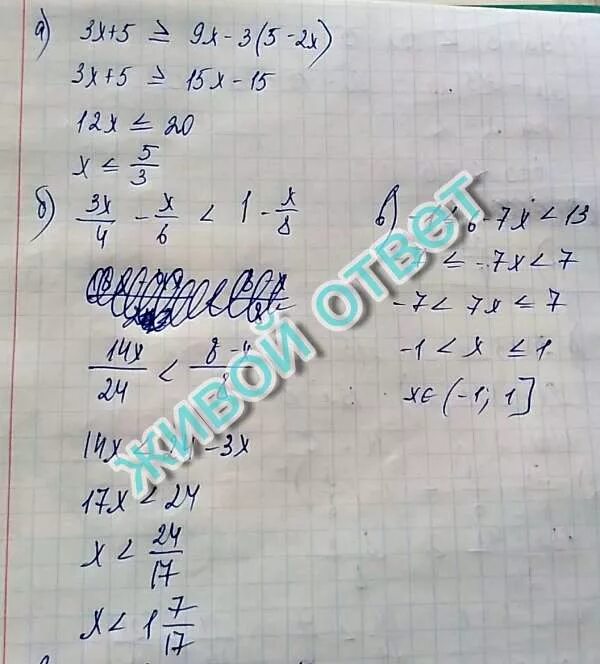 а) 3x+5 ≥ 9x-3(5-2x)
3x+5 ≥ 15x-15
12x ≤ 20
x ≤ 5/3
б) 3x/4 - x/6 < 1 - x/8
14x/24 < 8-
14x < - 3x
17x < 24
x < 24/17
x < 1 7/17
в) 6-7x < 13
≤ -7x < 7
-7 < 7x ≤ 7
-1 < x ≤ 1
x∈ (-1; 1]
ЖИВОЙ ОТВЕТ